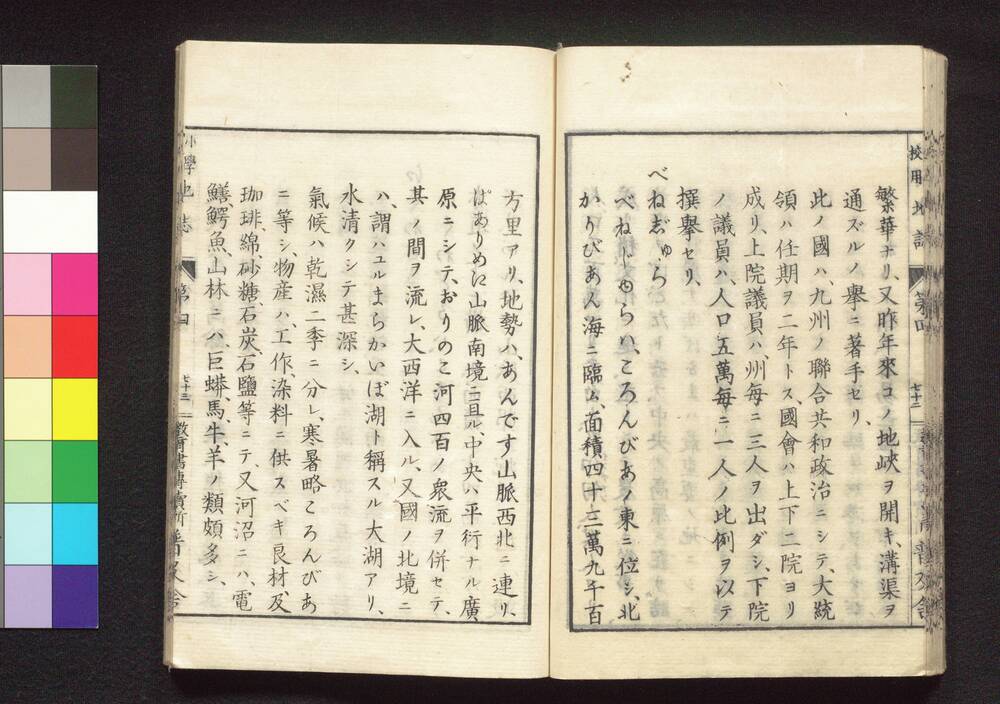 繁華ナリ、又昨年來コノ地峽ヲ開キ、溝渠ヲ
通ズルノ擧ニ著手セリ、
此ノ國ハ、九州ノ聯合共和政治ニシテ、大統
領ハ任期ヲ二年トス、國會ハ上下二院ヨリ
成リ、上院議員ハ、州每ニ三人ヲ出ダシ、下院
ノ議員ハ、人口五萬每ニ一人ノ比例ヲ以テ
撰擧セリ、
べねじゆら
べねじゆらハ、ころんびあノ東ニ位シ、北
かりびあん海ニ臨ム、面積四十三萬九千百
方里アリ、地勢ハ、あんです山脈西北ニ連リ、
ぱありめに山脈南境ニ亘ル、中央ハ平衍ナル廣
原ニシテ、おりのこ河四百ノ衆流ヲ併セテ、
其ノ間ヲ流レ、大西洋ニ入ル、又國ノ北境ニ
ハ、謂ハユルまらかいぼ湖ト稱スル大湖アリ、
水清クシテ甚深シ、
氣候ハ乾濕二季ニ分レ、寒暑略ころんびあ
ニ等シ、物産ハ、工作、染料ニ供スベキ良材、及
珈琲、綿、砂糖、石炭、石鹽等ニテ、又河沼ニハ、電
鱔、鰐魚、山林ニハ、巨蟒、馬、牛、羊ノ類頗多シ、
小學地誌 第四 七十三 教育書專賣所普及舍